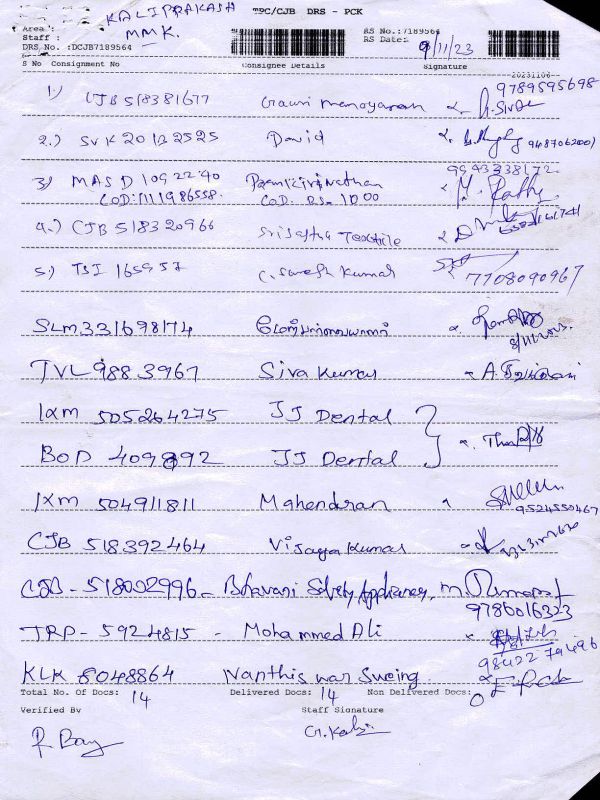 KALIPRAKASH
TPC/CJB DRS - PCK
Area :
MMK.
Staff :
RS No.:7189564
DRS No. :DCJB7189564
RS Date: 9/11/23
S No Consignment No Consignee Details Signature
20231108
9789595698
1) CJB 518381677
2.) SVK 20122525 David
3) MAS D 109 22240
9943338172
COD: 1111986558. COD. RS- 1000
4.) CJB 518320966 Textile
5.) TSI 165957 C. Suresh Kumar 7708090967
SLM 331698174
TVL 988 3967 Siva Kumar
IXM 505264275 JJ Dental
BOD 409892 JJ Dental
IXM 504911811 Mahendran
9524550467
CJB 518392464 Vijaya Kumar
CJB - 518002996 - Bhavani Safety Appliances,
9786016223
TRP - 5924815 - Mohammed Ali
98422 79496
KLK 8048864 Nanthiswar Sweing.
Total No. Of Docs: 14 Delivered Docs: 14 Non Delivered Docs: 0
Verified By Staff Signature